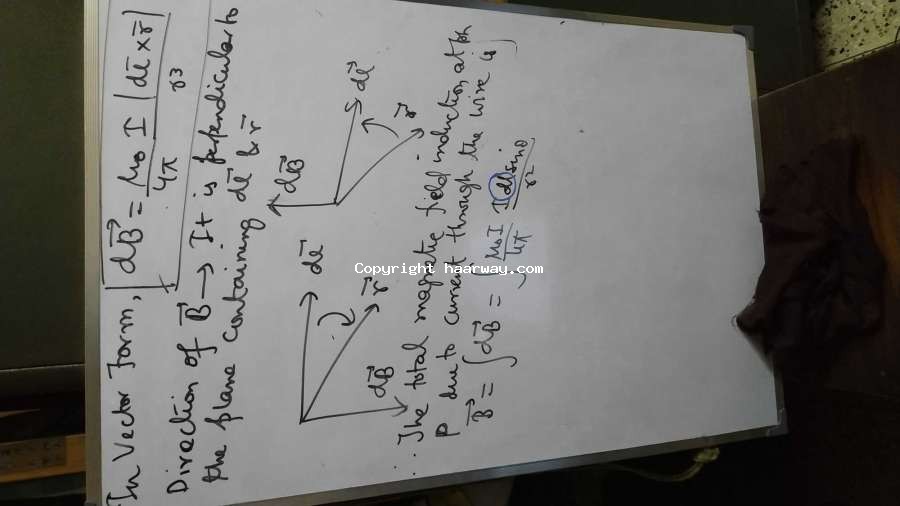 In Vector Form, dB⃗ = μ0 I |dl⃗ × r⃗| / 4π r3
Direction of B⃗ → It is perpendicular to
the plane containing dl⃗ & r⃗
dl⃗
r⃗
dB⃗
dB⃗
dl⃗
r⃗
∴ The total magnetic field induction at pt
P due to current through the wire is
B⃗ = ∫ dB⃗ = ∫ μ0 I / 4π I dl sinθ / r2
Copyright haarway.com